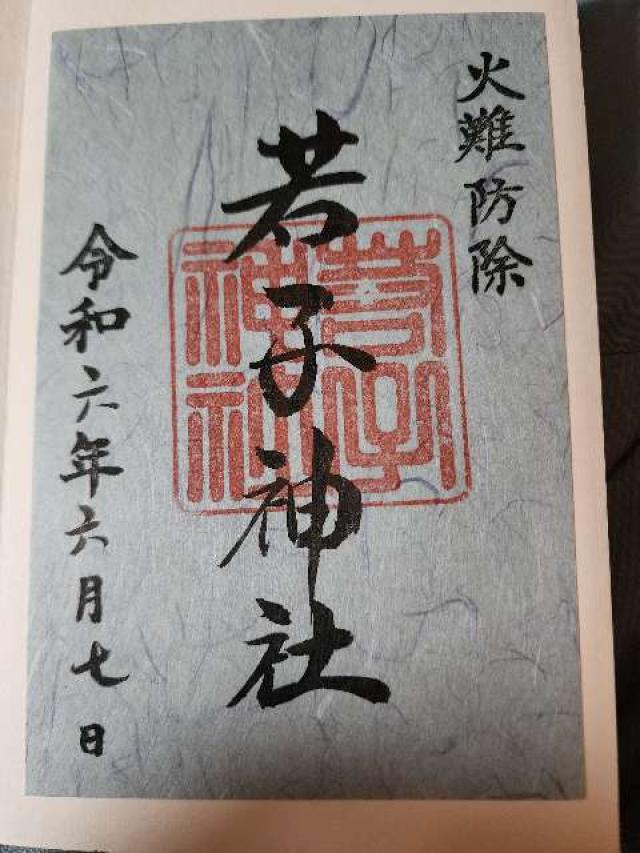 火難防除
若子神社
若子神社
令和六年六月七日